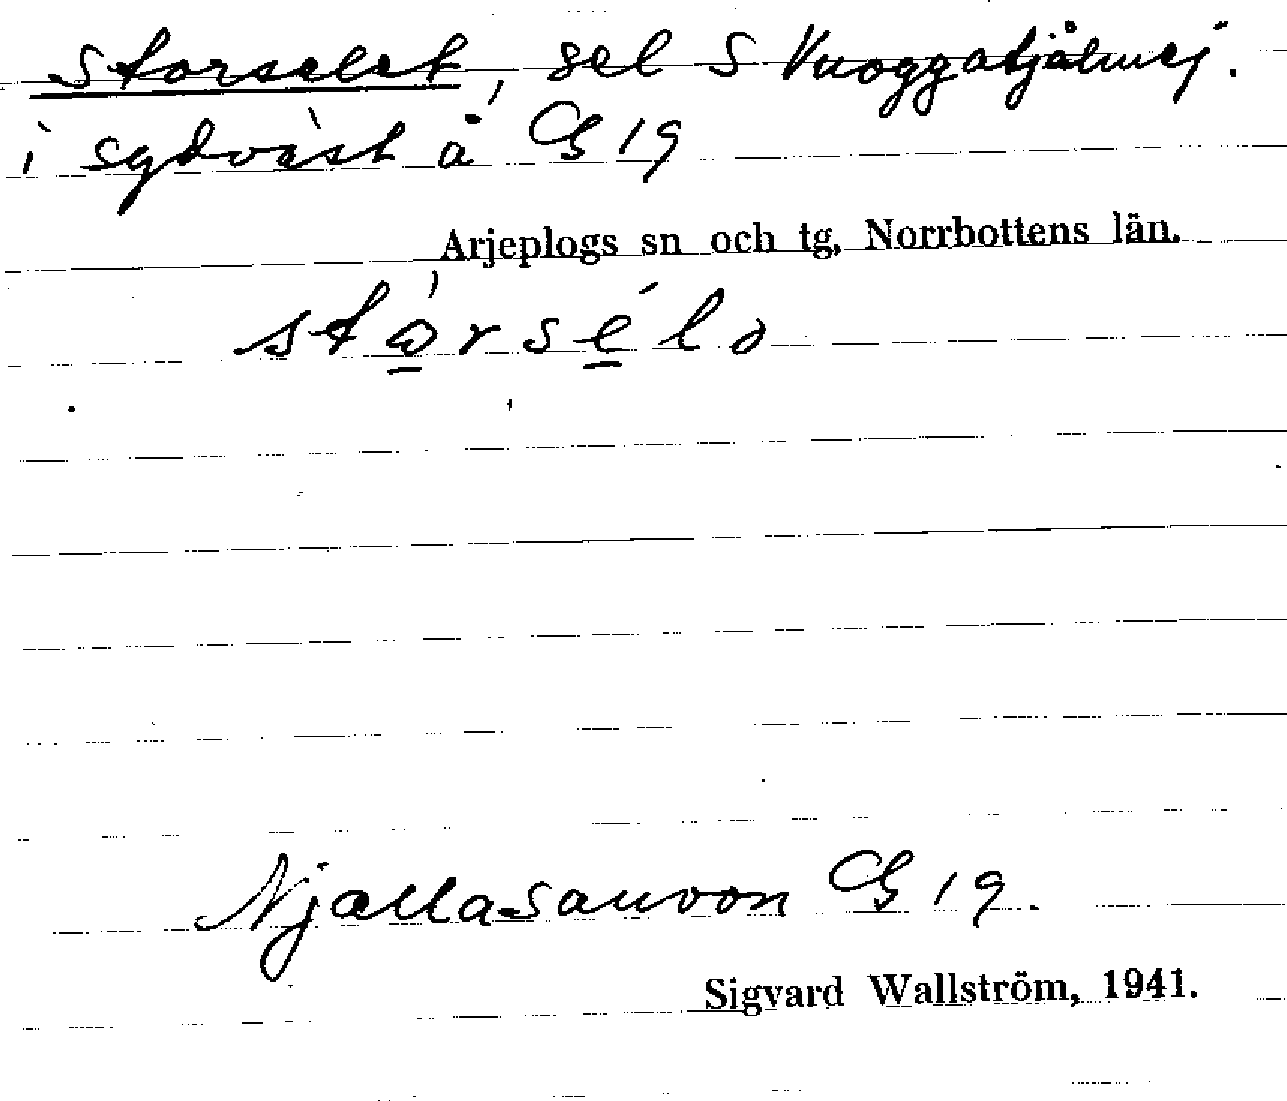 Storselet, sel S Vuoggatjålmej.
i sydväst å G 19
Arjeplogs sn och tg, Norrbottens län.
Njallasauvon G 19.
Sigvard Wallström, 1941.